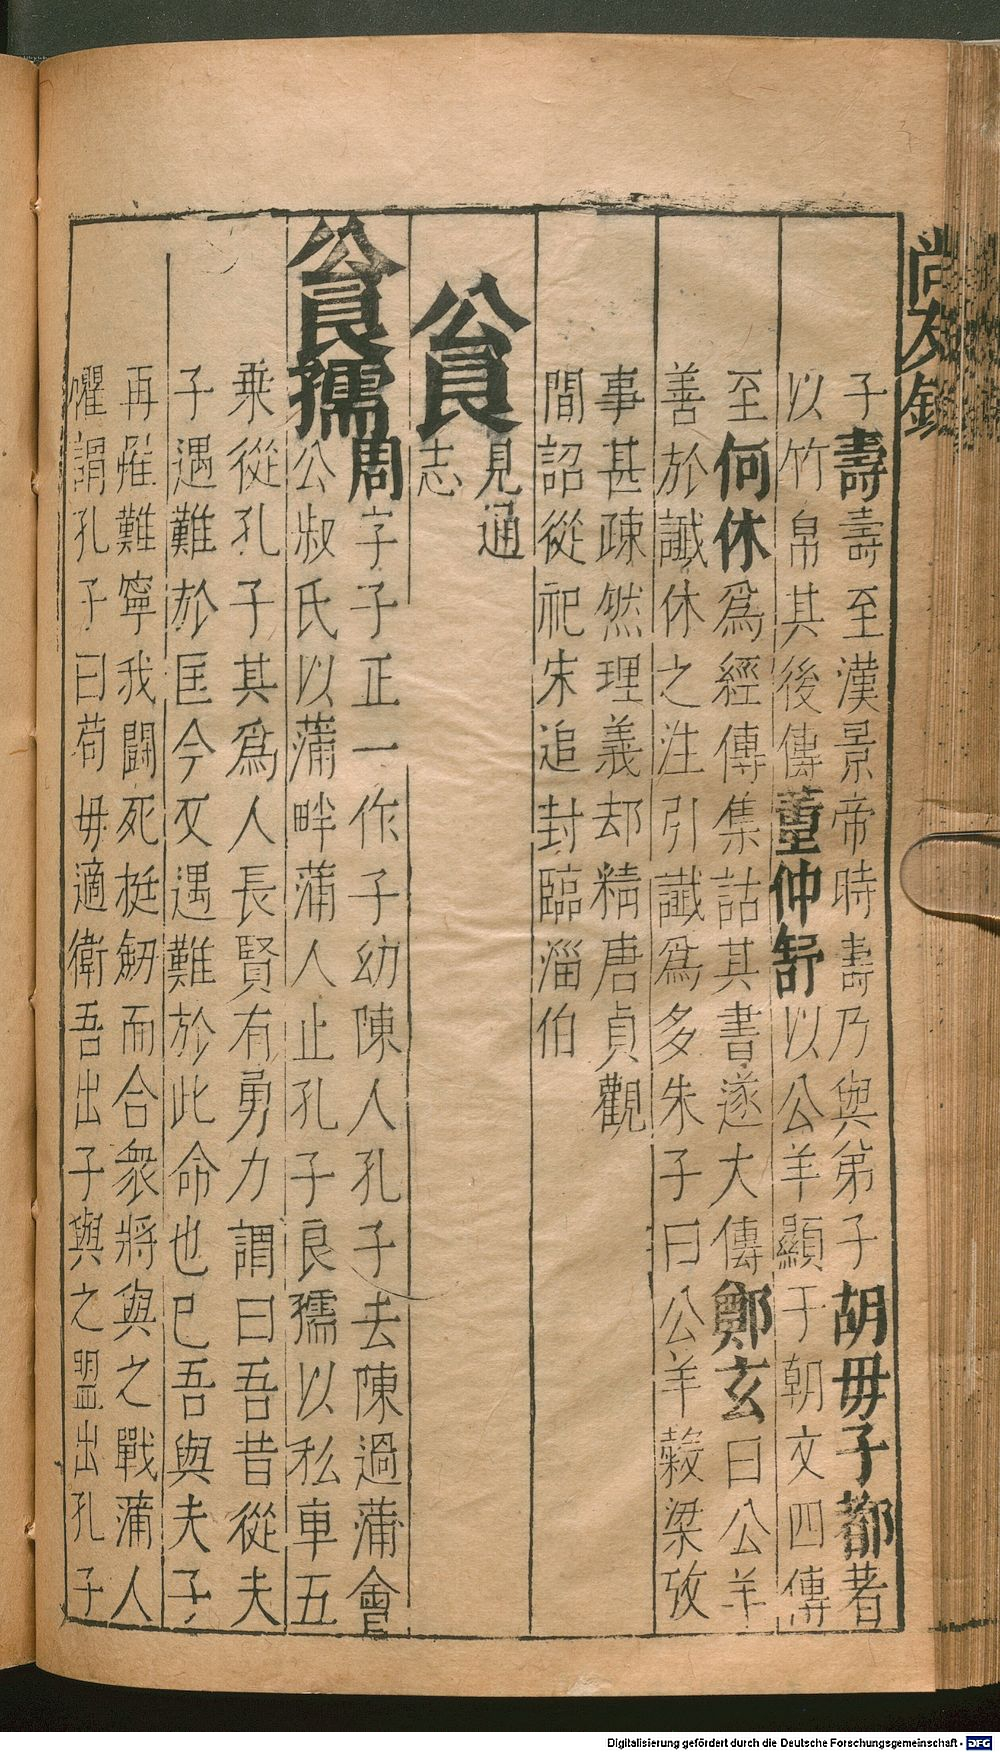 尚友錄
子壽壽至漢景帝時壽乃與弟子胡毋子都著
以竹帛其後傳董仲舒以公羊顯于朝文四傳
至何休爲經傳集詁其書遂大傳鄭玄曰公羊
善於讖休之注引讖爲多朱子曰公羊穀梁攷
事甚疎然理義却精唐貞觀
間詔從祀宋追封臨淄伯
見通
志
周字子正一作子幼陳人孔子去陳過蒲會
公叔氏以蒲畔蒲人止孔子良孺以私車五
乗從孔子其爲人長賢有勇力謂曰吾昔從夫
子遇難於匡今又遇難於此命也已吾與夫子
再罹難寧我鬭死挺劒而合衆將與之戰蒲人
懼謂孔子曰苟毋適衛吾出子與之盟出孔子
Digitalisierung gefördert durch die Deutsche Forschungsgemeinschaft - DFG